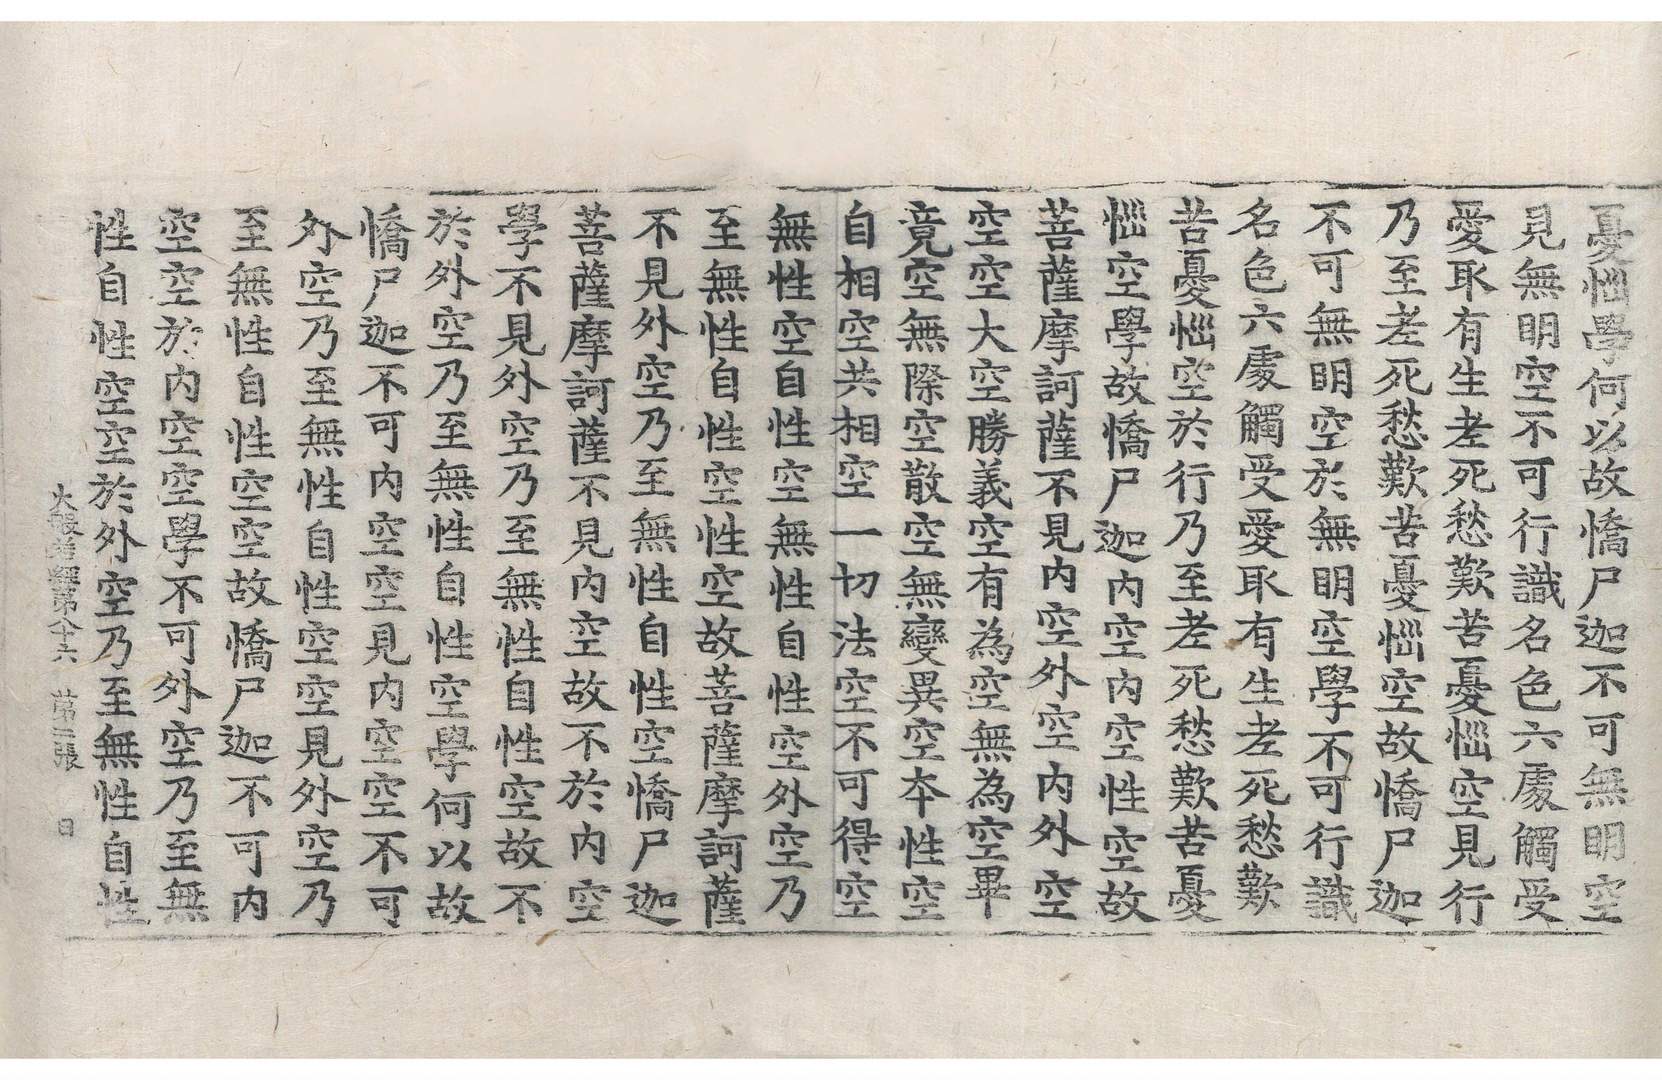 憂惱學何以故憍尸迦不可無明空
見無明空不可行識名色六處觸受
愛取有生老死愁歎苦憂惱空見行
乃至老死愁歎苦憂惱空故憍尸迦
不可無明空於無明空學不可行識
名色六處觸受愛取有生老死愁歎
苦憂惱空於行乃至老死愁歎苦憂
惱空學故憍尸迦內空內空性空故
菩薩摩訶薩不見內空外空內外空
空空大空勝義空有為空無為空畢
竟空無際空散空無變異空本性空
自相空共相空一切法空不可得空
無性空自性空無性自性空外空乃
至無性自性空性空故菩薩摩訶薩
不見外空乃至無性自性空憍尸迦
菩薩摩訶薩不見內空故不於內空
學不見外空乃至無性自性空故不
於外空乃至無性自性空學何以故
憍尸迦不可內空空見內空空不可
外空乃至無性自性空空見外空乃
至無性自性空空故憍尸迦不可內
空空於內空空學不可外空乃至無
性自性空空於外空乃至無性自性
大般若經第八十六 第三張 日